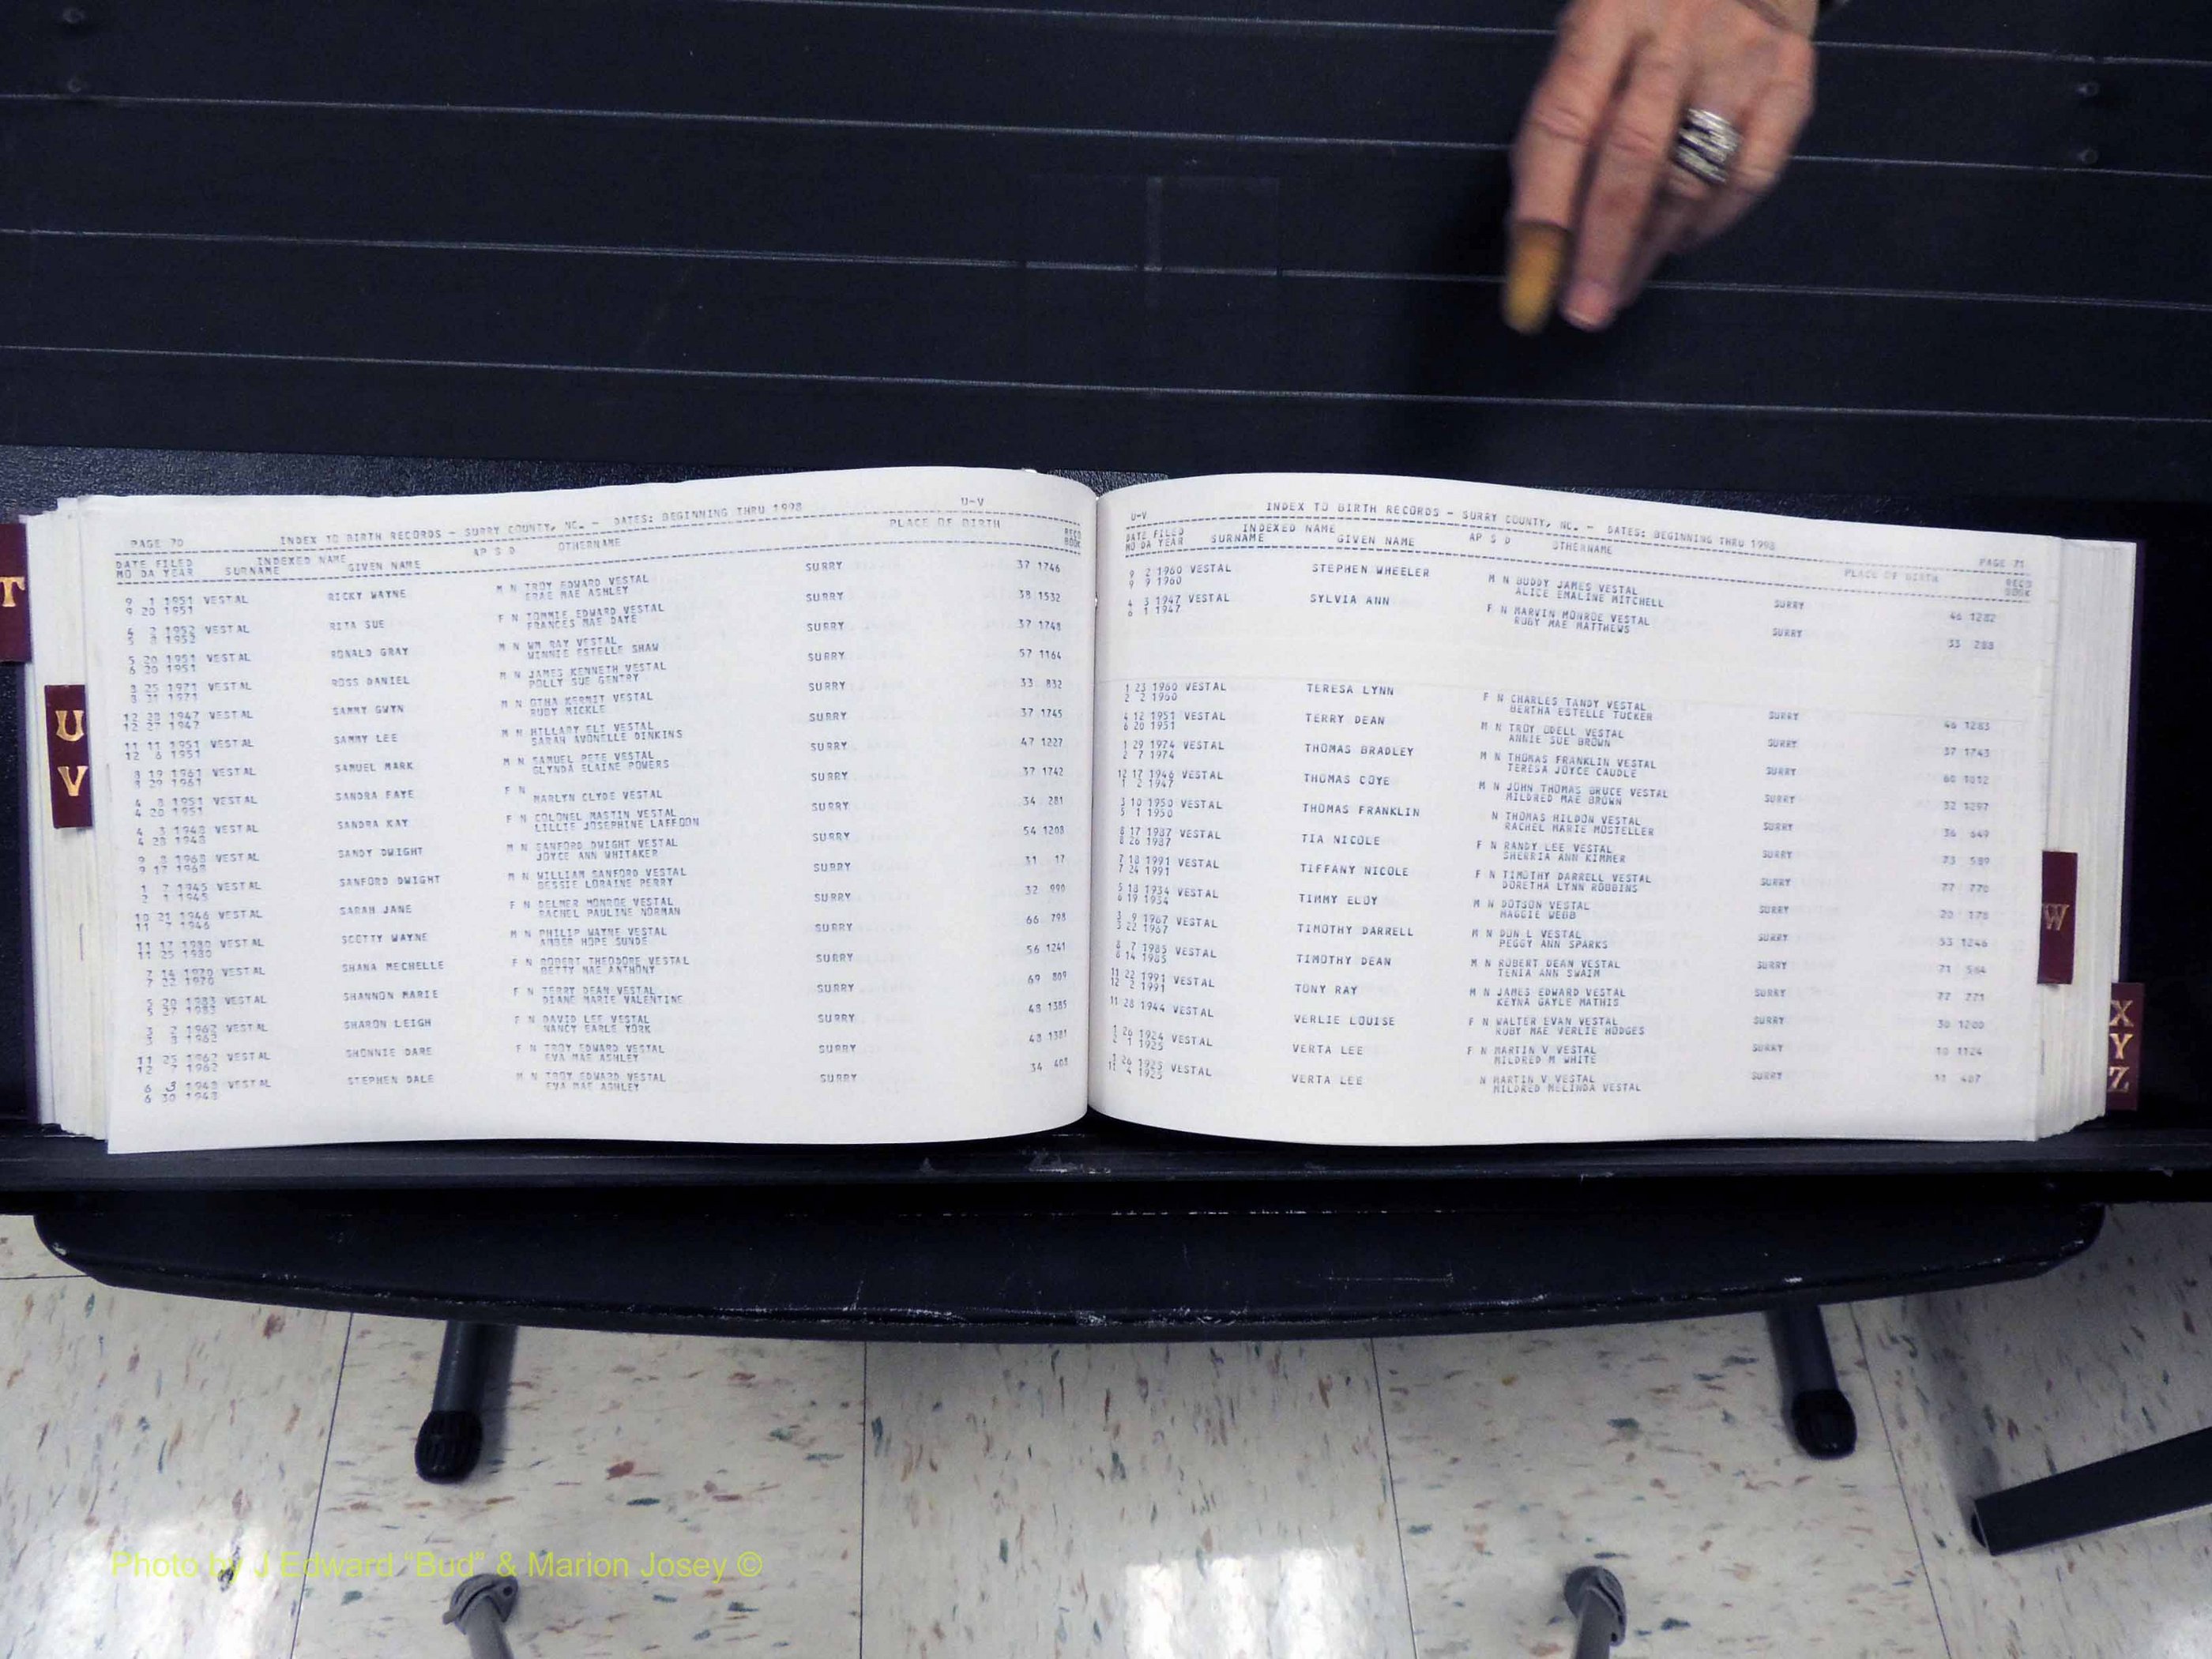 U-V
PAGE 70 INDEX TO BIRTH RECORDS - SURRY COUNTY, NC. - DATES: BEGINNING THRU 1998
DATE FILED INDEXED NAME AP S D OTHERNAME PLACE OF BIRTH RECD
MO DA YEAR SURNAME GIVEN NAME BOOK
9 1 1951 VESTAL RICKY WAYNE M N TROY EDWARD VESTAL SURRY 37 1746
9 20 1951 ERAE MAE ASHLEY
4 2 1952 VESTAL RITA SUE F N TOMMIE EDWARD VESTAL SURRY 38 1532
5 8 1952 FRANCES MAE DAYE
5 20 1951 VESTAL RONALD GRAY M N WM RAY VESTAL SURRY 37 1748
6 20 1951 WINNIE ESTELLE SHAW
8 25 1971 VESTAL ROSS DANIEL M N JAMES KENNETH VESTAL SURRY 57 1164
8 31 1971 POLLY SUE GENTRY
12 20 1947 VESTAL SAMMY GWYN M N OTHA KERMIT VESTAL SURRY 33 832
12 27 1947 RUBY MICKLE
11 11 1951 VESTAL SAMMY LEE M N HILLARY ELI VESTAL SURRY 37 1745
12 6 1951 SARAH AVONELLE DINKINS
8 19 1961 VESTAL SAMUEL MARK M N SAMUEL PETE VESTAL SURRY 47 1227
8 29 1961 GLYNDA ELAINE POWERS
4 8 1951 VESTAL SANDRA FAYE F N SURRY 37 1742
4 20 1951 MARLYN CLYDE VESTAL
4 3 1948 VESTAL SANDRA KAY F N COLONEL MASTIN VESTAL SURRY 34 281
4 28 1948 LILLIE JOSEPHINE LAFFOON
9 8 1968 VESTAL SANDY DWIGHT M N SANFORD DWIGHT VESTAL SURRY 54 1208
9 17 1968 JOYCE ANN WHITAKER
1 7 1945 VESTAL SANFORD DWIGHT M N WILLIAM SANFORD VESTAL SURRY 31 17
2 1 1945 BESSIE LORAINE PERRY
10 21 1946 VESTAL SARAH JANE F N DELMER MONROE VESTAL SURRY 32 990
11 7 1946 RACHEL PAULINE NORMAN
11 17 1980 VESTAL SCOTTY WAYNE M N PHILIP WAYNE VESTAL SURRY 66 798
11 25 1980 AMBER HOPE SUNDE
7 14 1970 VESTAL SHANA MECHELLE F N ROBERT THEODORE VESTAL SURRY 56 1241
7 22 1970 BETTY MAE ANTHONY
5 20 1983 VESTAL SHANNON MARIE F N TERRY DEAN VESTAL SURRY 69 809
5 27 1983 DIANE MARIE VALENTINE
3 2 1962 VESTAL SHARON LEIGH F N DAVID LEE VESTAL SURRY 48 1385
3 8 1962 NANCY EARLE YORK
11 25 1962 VESTAL SHONNIE DARE F N TROY EDWARD VESTAL SURRY 48 1381
12 7 1962 EVA MAE ASHLEY
6 3 1948 VESTAL STEPHEN DALE M N TROY EDWARD VESTAL SURRY 34 403
6 30 1948 EVA MAE ASHLEY
U-V INDEX TO BIRTH RECORDS - SURRY COUNTY, NC. - DATES: BEGINNING THRU 1998 PAGE 71
DATE FILED INDEXED NAME AP S D OTHERNAME PLACE OF BIRTH RECD
MO DA YEAR SURNAME GIVEN NAME BOOK
9 2 1960 VESTAL STEPHEN WHEELER M N BUDDY JAMES VESTAL SURRY 46 1282
9 9 1960 ALICE EMALINE MITCHELL
4 3 1947 VESTAL SYLVIA ANN F N MARVIN MONROE VESTAL SURRY 33 288
6 1 1947 RUBY MAE MATTHEWS
1 23 1960 VESTAL TERESA LYNN F N CHARLES TANDY VESTAL SURRY 46 1283
2 2 1960 BERTHA ESTELLE TUCKER
4 12 1951 VESTAL TERRY DEAN M N TROY ODELL VESTAL SURRY 37 1743
6 20 1951 ANNIE SUE BROWN
1 29 1974 VESTAL THOMAS BRADLEY M N THOMAS FRANKLIN VESTAL SURRY 60 1012
2 7 1974 TERESA JOYCE CAUDLE
12 17 1946 VESTAL THOMAS COYE M N JOHN THOMAS BRUCE VESTAL SURRY 32 1297
1 2 1947 MILDRED MAE BROWN
3 10 1950 VESTAL THOMAS FRANKLIN N THOMAS HILDON VESTAL SURRY 36 649
5 1 1950 RACHEL MARIE MOSTELLER
8 17 1987 VESTAL TIA NICOLE F N RANDY LEE VESTAL SURRY 73 589
8 26 1987 SHERRIA ANN KIMMER
7 18 1991 VESTAL TIFFANY NICOLE F N TIMOTHY DARRELL VESTAL SURRY 77 770
7 24 1991 DORETHA LYNN ROBBINS
5 18 1934 VESTAL TIMMY ELOY M N DOTSON VESTAL SURRY 20 178
6 19 1934 MAGGIE WEBB
3 9 1967 VESTAL TIMOTHY DARRELL M N DON L VESTAL SURRY 53 1246
3 22 1967 PEGGY ANN SPARKS
8 7 1985 VESTAL TIMOTHY DEAN M N ROBERT DEAN VESTAL SURRY 71 564
8 14 1985 TENIA ANN SWAIM
11 22 1991 VESTAL TONY RAY M N JAMES EDWARD VESTAL SURRY 77 771
12 2 1991 KEYNA GAYLE MATHIS
11 28 1944 VESTAL VERLIE LOUISE F N WALTER EVAN VESTAL SURRY 30 1200
RUBY MAE VERLIE HODGES
1 26 1924 VESTAL VERTA LEE F N MARTIN V VESTAL SURRY 10 1124
2 1 1925 MILDRED M WHITE
1 26 1925 VESTAL VERTA LEE N MARTIN V VESTAL SURRY 11 407
11 4 1925 MILDRED MELINDA VESTAL
T
U
V
W
X
Y
Z
Photo by J Edward “Bud” & Marion Josey ©